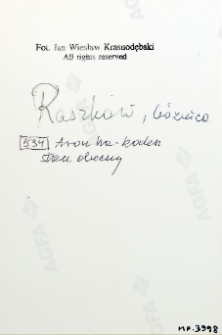 Fot. Jan Wiesław Krasnodębski
All rights reserved
Raszków, bóżnica
534 Aron ha-kodesz
stan obecny
AGFA
MP-3998